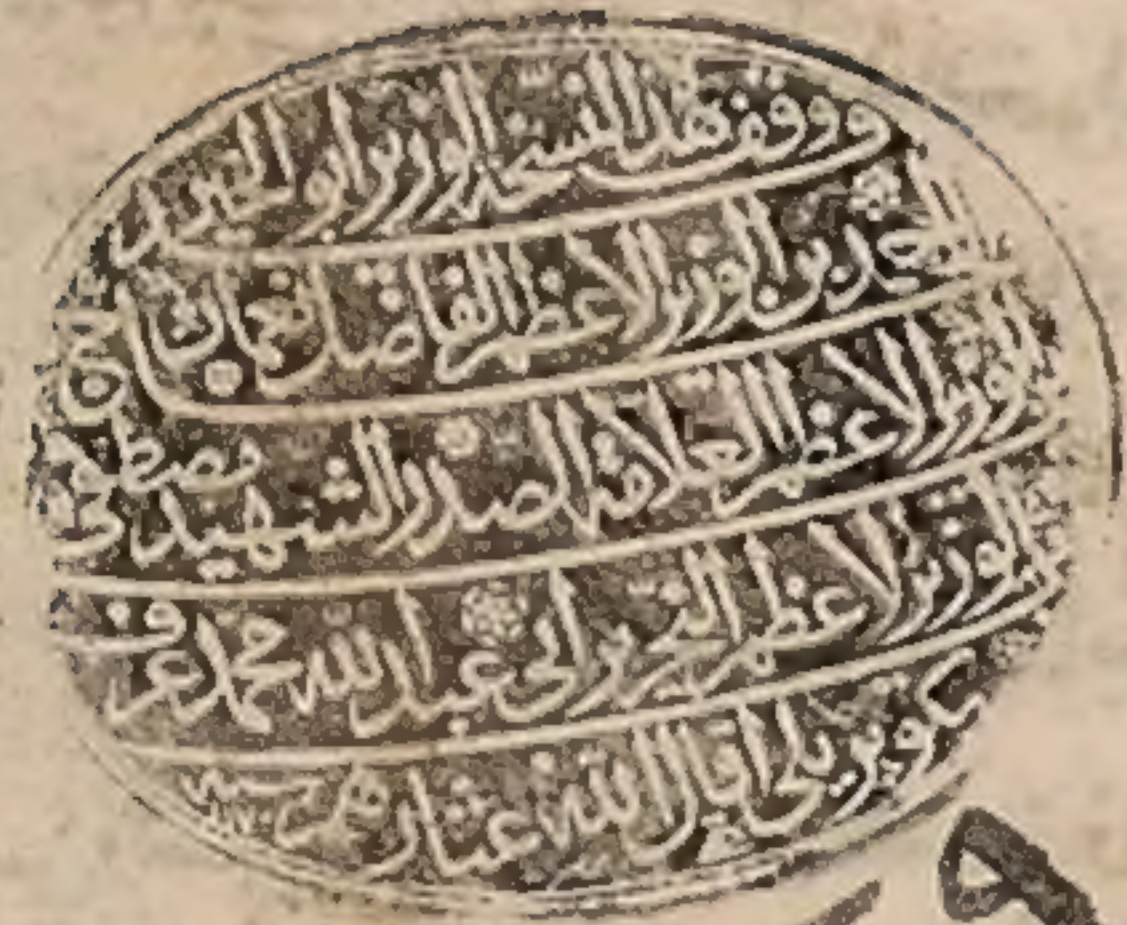 ووقف هذا النسخة الوزير ابو الخير
احمد بن الوزير الاعظم الفاضل نعمان بن
الوزير الاعظم العلامة الصدر الشهيد مصطفى بن
الوزير الاعظم النحرير ابى عبد الله محمد عرف
بكوپريلى اقال الله عثارهم